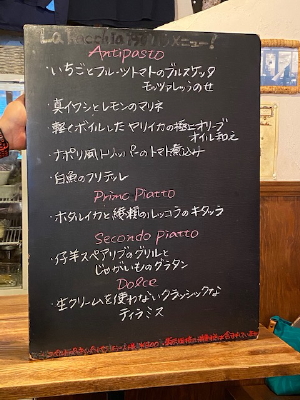 La
メニュー?
Antipasto
・いちごとフルーツトマトのブルスケッタ
モッツァレッラのせ
・真イワシとレモンのマリネ
・軽くボイルしたヤリイカの極上オリーブ
オイル和え
・ナポリ風トリッパーのトマト煮込み
・白魚のフリテッレ
Primo Piatto
・ホタルイカと綾瀬のルッコラのキタッラ
Secondo piatto
・仔羊スペアリブのグリルと
じゃがいものグラタン
Dolce
・生クリームを使わないクラッシックな
ティラミス